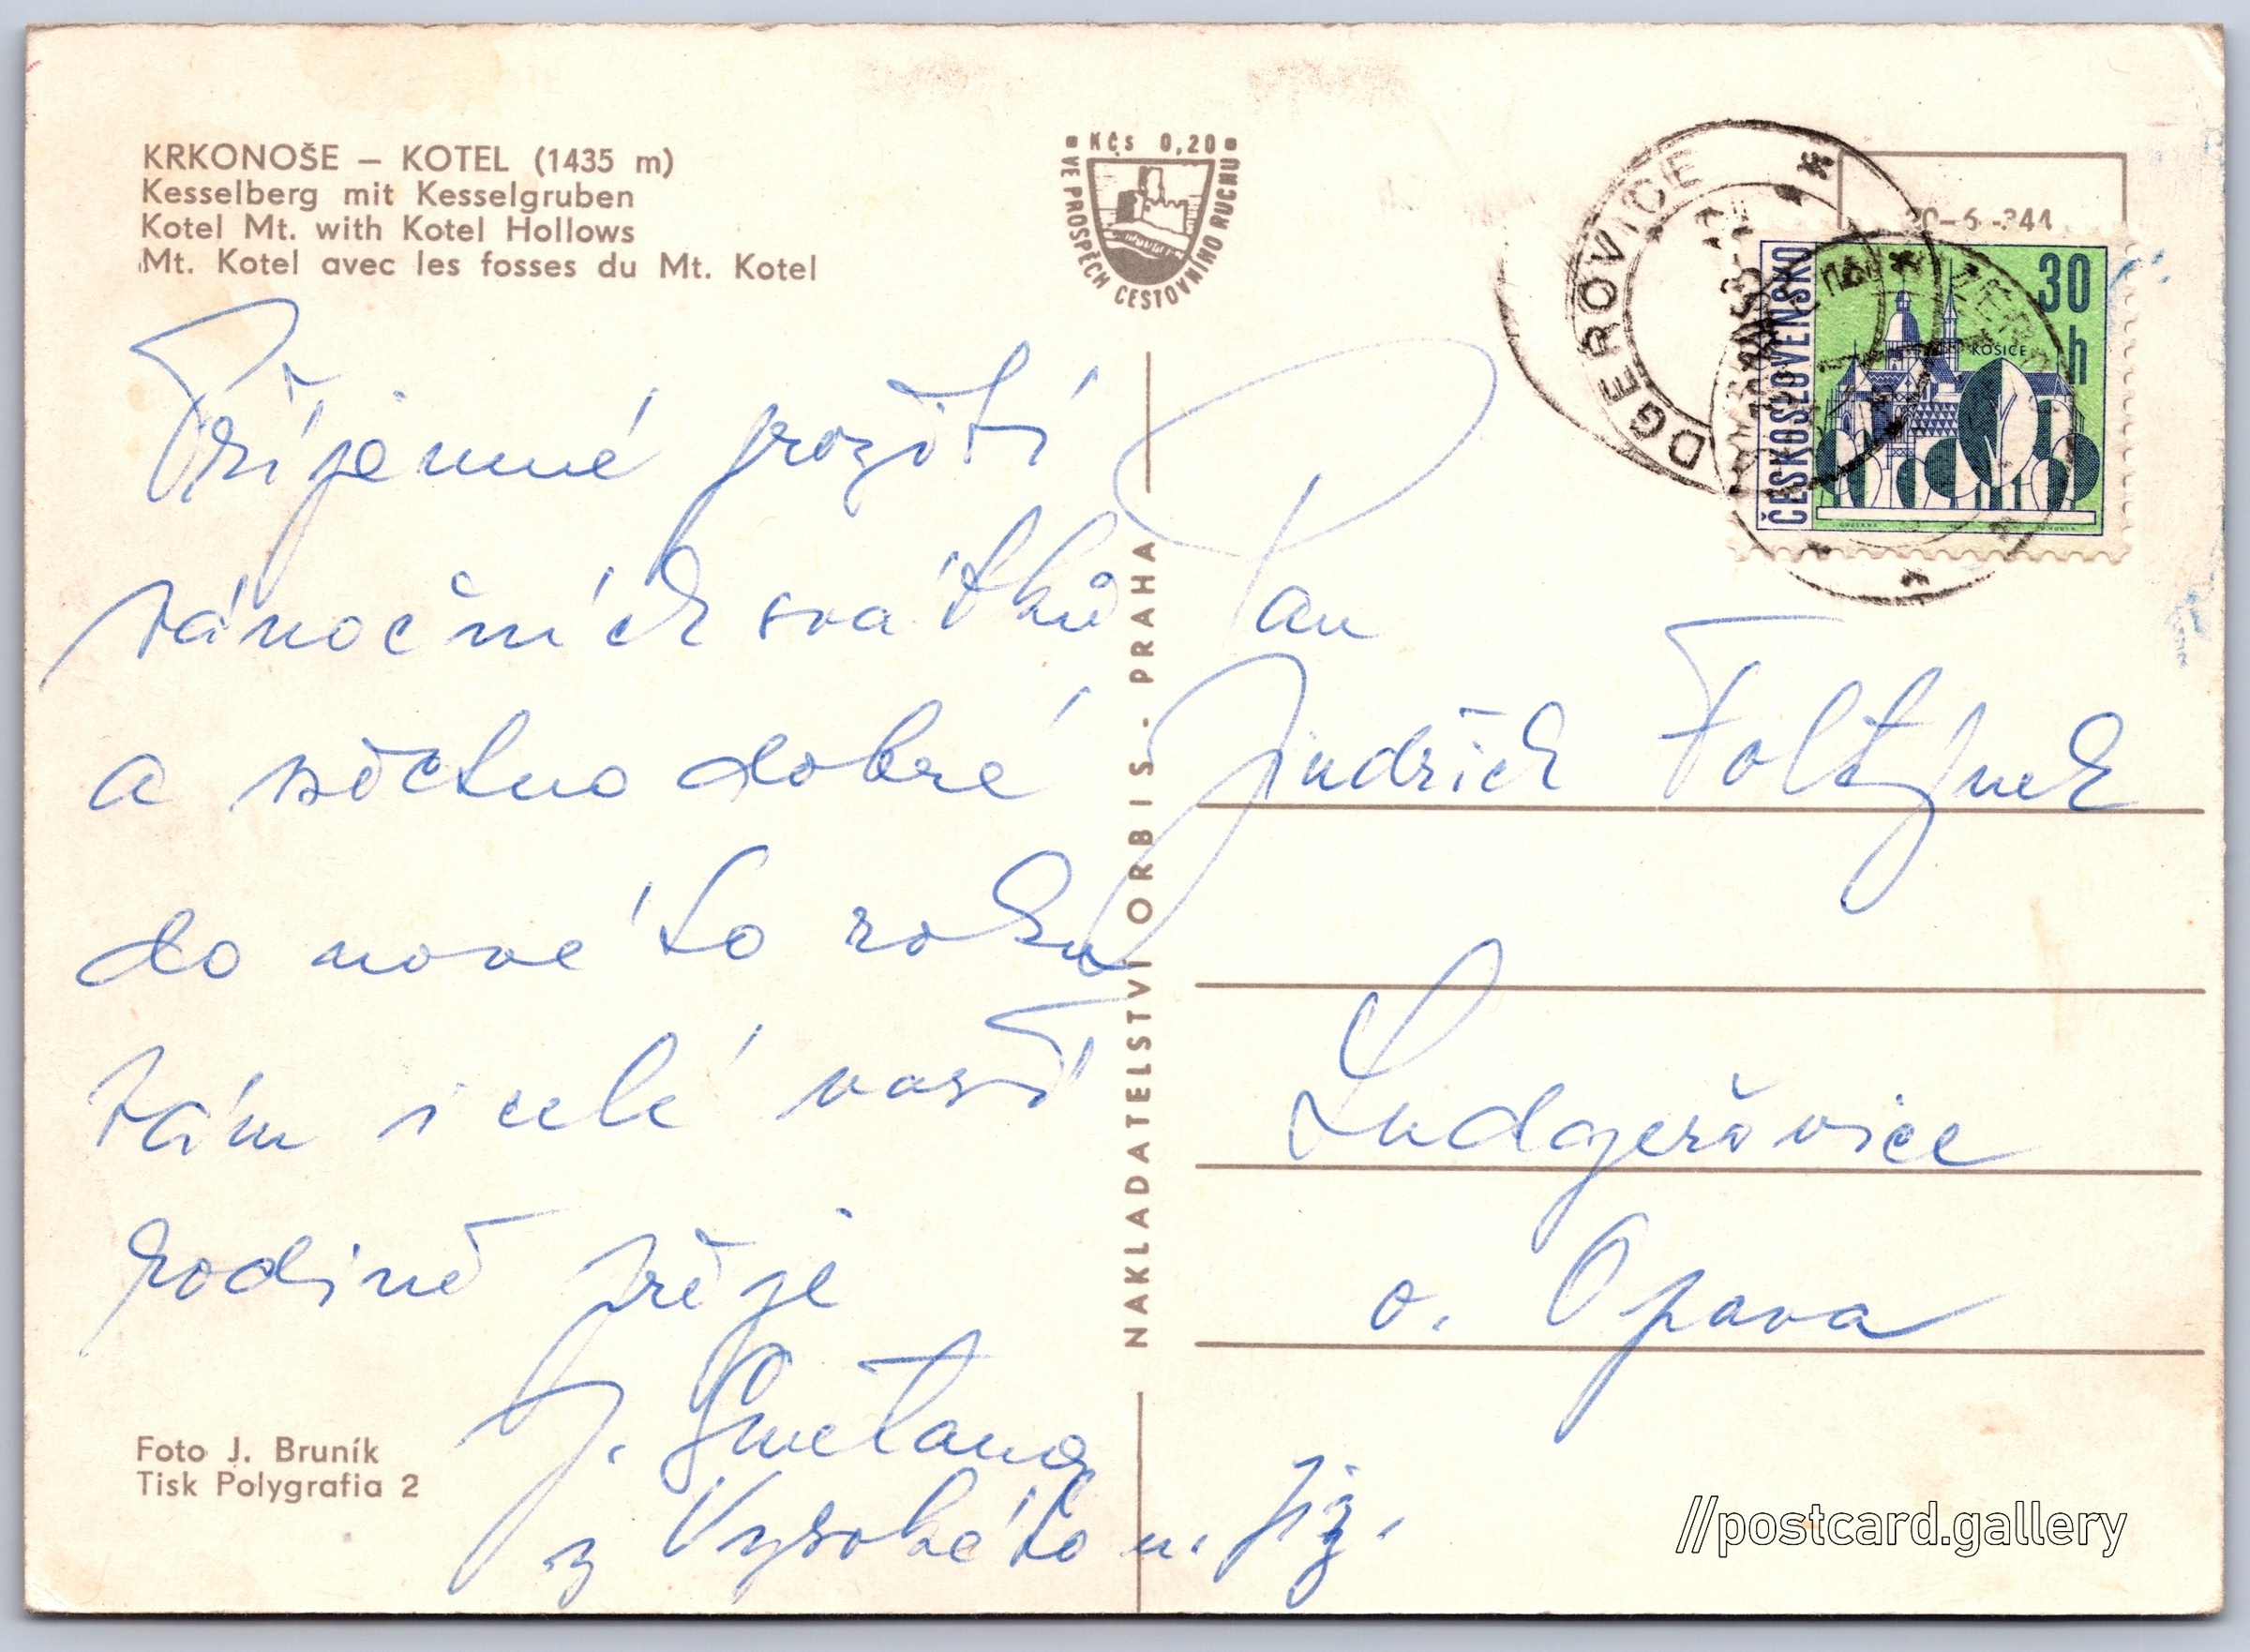 KRKONOŠE – KOTEL (1435 m)
Kesselberg mit Kesselgruben
Kotel Mt. with Kotel Hollows
Mt. Kotel avec les fosses du Mt. Kotel
KČs 0,20
VE PROSPĚCH CESTOVNÍHO RUCHU
DGEROVICE
20-6-344
ČESKOSLOVENSKO
30
h
KOŠICE
Příjemné prožití
vánočních svátků
a všechno dobré
do nového roku
Vám i celé vaší
rodině přeje
J. Smetana
z Vysokého n. Jiz.
NAKLADATELSTVÍ ORBIS - PRAHA
Pan
Jindřich Foltýnek
Ludgeřovice
o. Opava
Foto J. Bruník
Tisk Polygrafia 2
//postcard.gallery